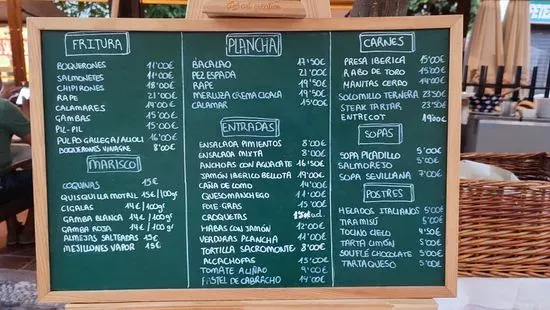 FRITURA
BOQUERONES 11'00€
SALMONETES 11'00€
CHIPIRONES 18'00€
RAPE 21'00€
CALAMARES 19'00€
GAMBAS 15'00€
PIL-PIL 15'00€
PULPO GALLEGA/ALIOLI 16'50€
BOQUERONES VINAGRE 8'00€
MARISCO
COQUINAS 15€
QUISQUILLA MOTRIL 15€/100gr
CIGALAS 14€/100gr
GAMBA BLANCA 14€/100gr
GAMBA ROJA 14€/100gr
ALMEJAS SALTEADAS 15€
MEJILLONES VAPOR 15€
PLANCHA
BACALAO 17'50€
PEZ ESPADA 21'00€
RAPE 19'50€
MERLUZA CREMA CIGALA 19'50€
CALAMAR 15'00€
ENTRADAS
ENSALADA PIMIENTOS 8'00€
ENSALADA MIXTA 8'00€
ANCHOAS CON AGUACATE 16'50€
JAMÓN IBERICO BELLOTA 19'00€
CAÑA DE LOMO 14'00€
QUESO MANCHEGO 14'00€
FOIE-GRAS 15'00€
CROQUETAS
HABAS CON JAMÓN 12'00€
VERDURAS PLANCHA 11'00€
TORTILLA SACROMONTE 8'00€
ALCACHOFAS 15'00€
TOMATE ALIÑAO 9'00€
PASTEL DE CABRACHO 14'00€
CARNES
PRESA IBERICA 15'00€
RABO DE TORO 15'00€
MANITAS CERDO 14'00€
SOLOMILLO TERNERA 23'50€
STEAK TARTAR 23'50€
ENTRECOT 19'00€
SOPAS
SOPA PICADILLO 5'00€
SALMOREJO 5'00€
SOPA SEVILLANA 7'00€
POSTRES
HELADOS ITALIANOS 5'00€
TIRAMISÚ 5'00€
TOCINO CIELO 4'50€
TARTA LIMÓN 5'00€
SOUFFLÉ CHOCOLATE 5'00€
TARTA QUESO 5'00€